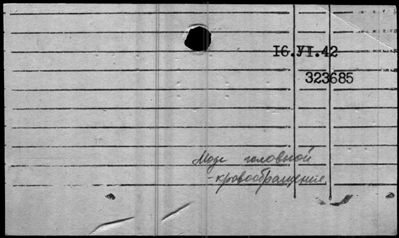 16.VI.42
323685
Мозг головной
-кровообращение